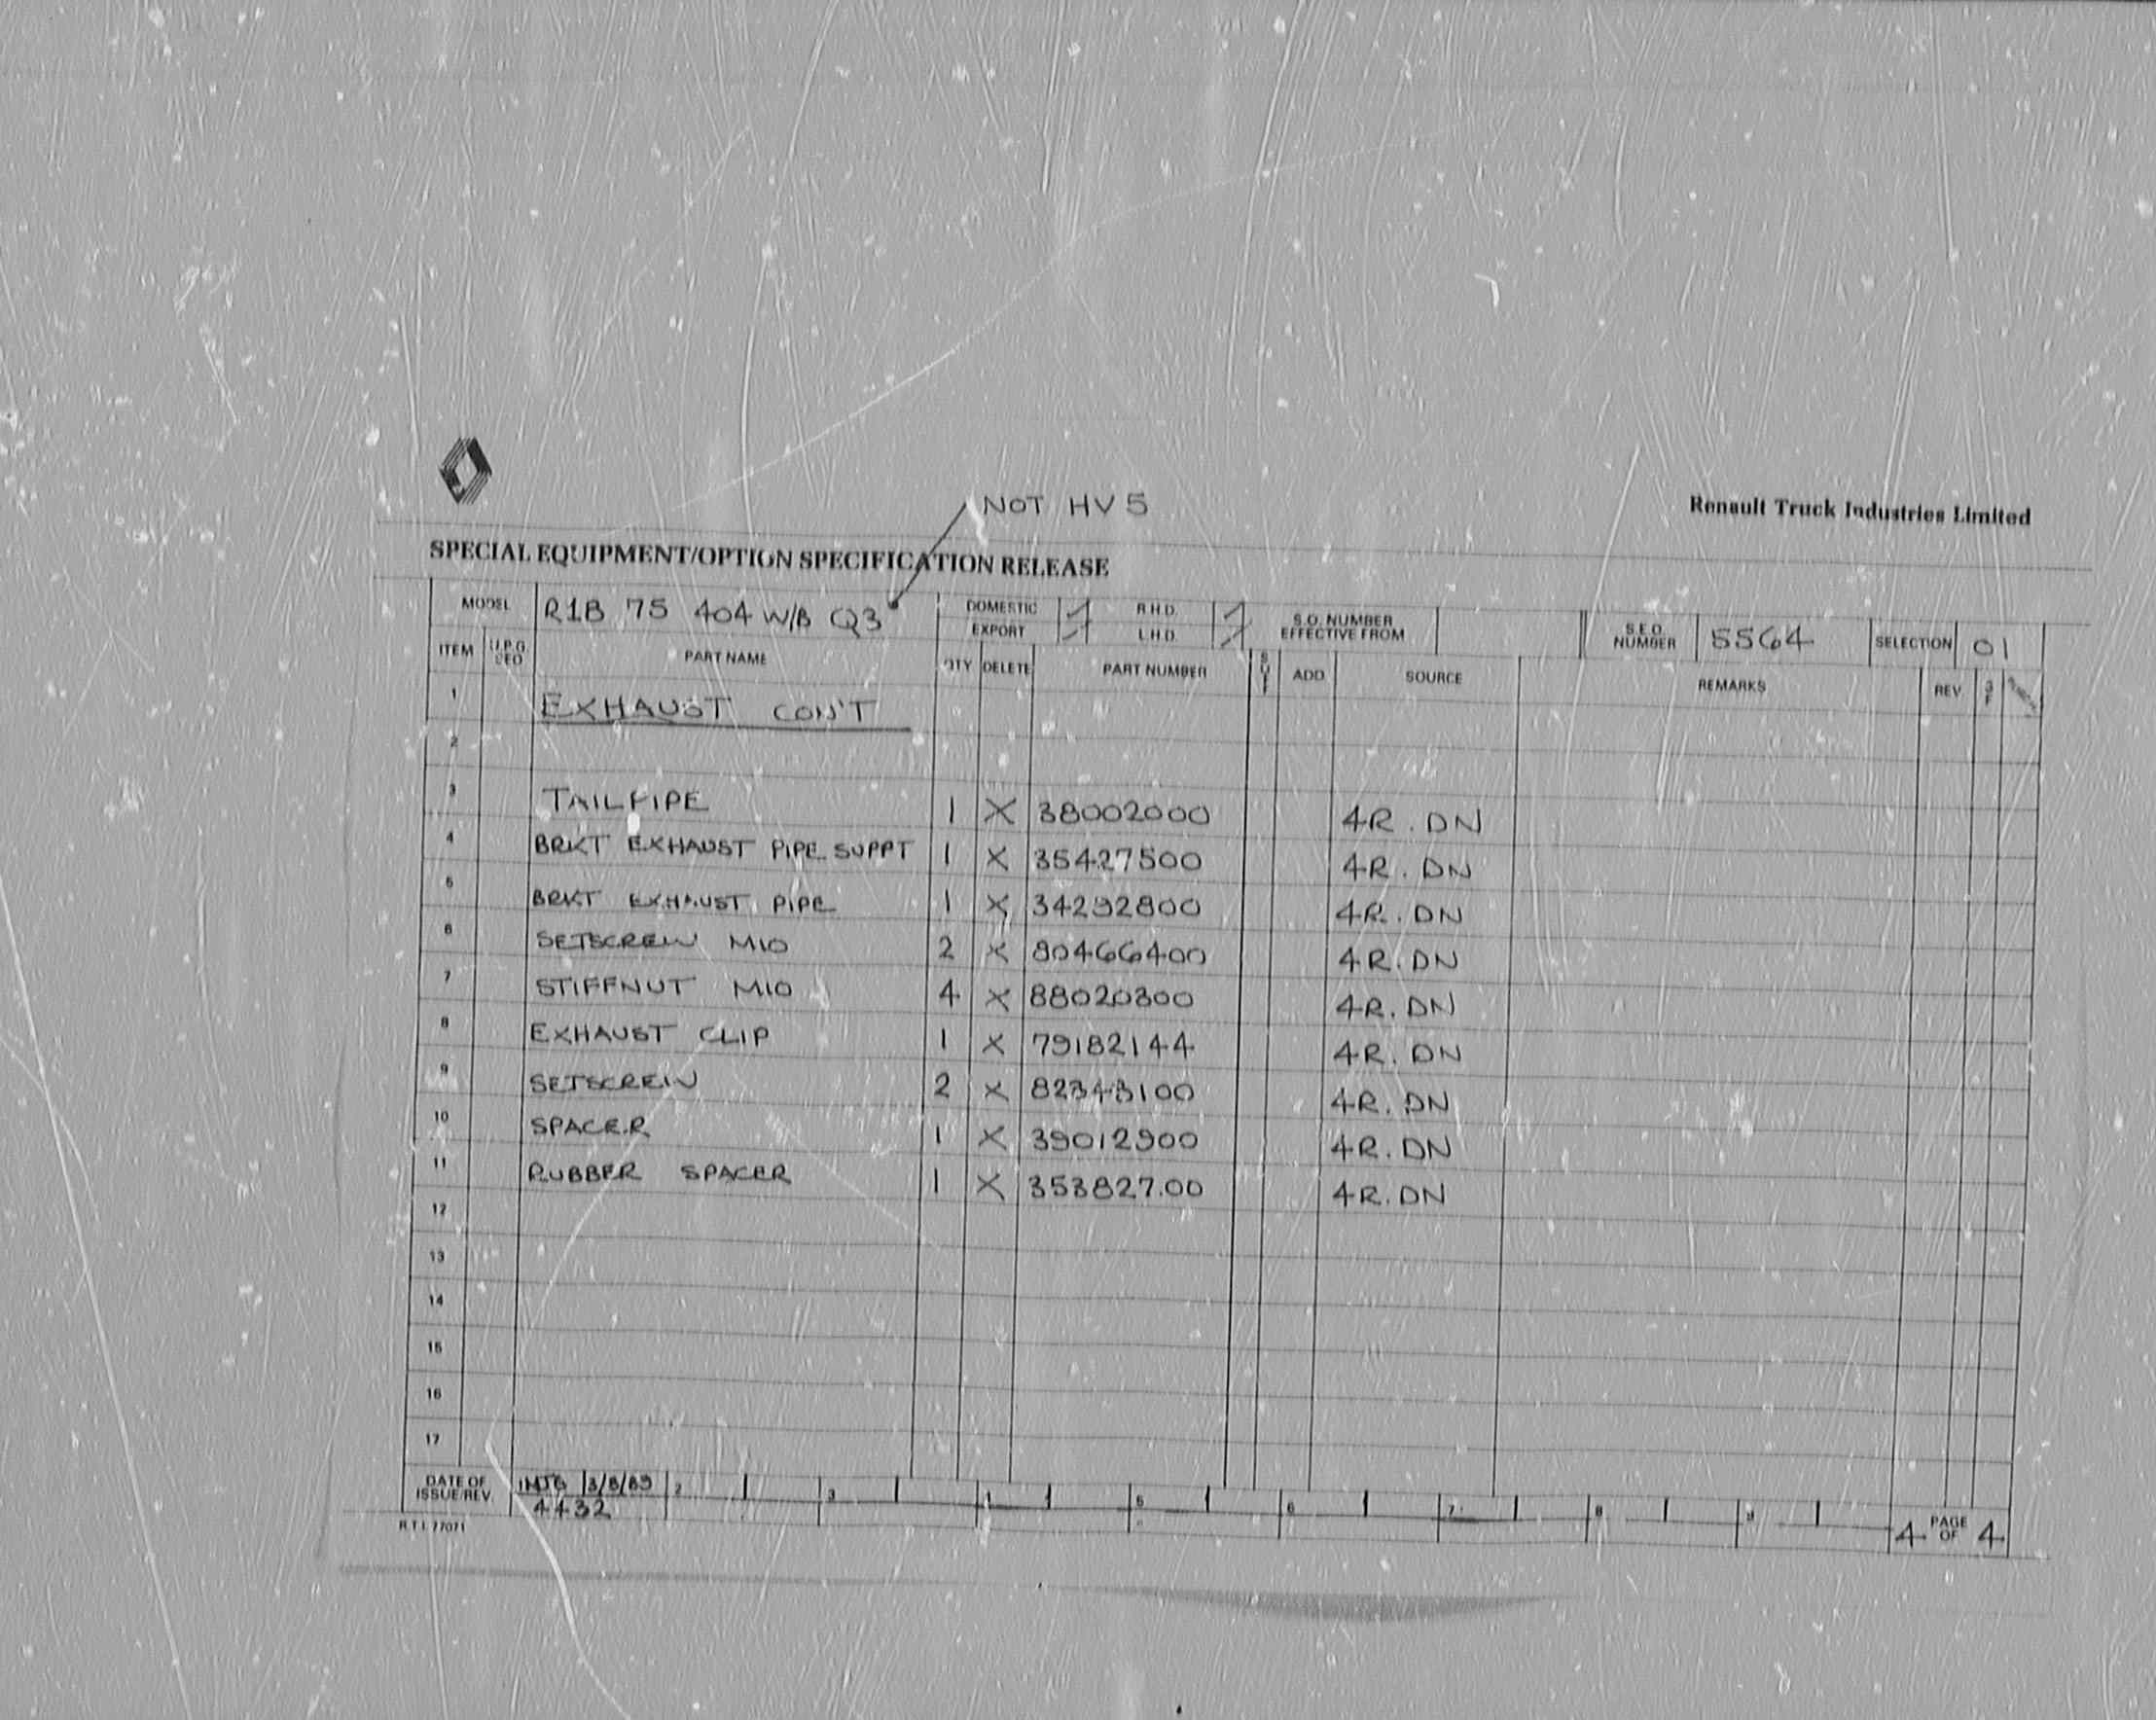 NOT HV5
Renault Truck Industries Limited
SPECIAL EQUIPMENT/OPTION SPECIFICATION RELEASE
MODEL R1B 75 404 W/B Q3 DOMESTIC R.H.D. S.O. NUMBER S.E.O. 5564 SELECTION 01
EXPORT L.H.D. EFFECTIVE FROM NUMBER
ITEM U.P.G. PART NAME QTY DELETE PART NUMBER ADD SOURCE REMARKS REV
1 EXHAUST CON'T
2
3 TAILPIPE 1 X 38002000 4R.DN
4 BRKT EXHAUST PIPE SUPPT 1 X 35427500 4R.DN
5 BRKT EXHAUST PIPE 1 X 34292800 4R.DN
6 SETSCREW M10 2 X 80466400 4R.DN
7 STIFFNUT M10 4 X 88020300 4R.DN
8 EXHAUST CLIP 1 X 79182144 4R.DN
9 SETSCREW 2 X 82343100 4R.DN
10 SPACER 1 X 39012900 4R.DN
11 RUBBER SPACER 1 X 353827.00 4R.DN
12
13
14
15
16
17
DATE OF ISSUE/REV. 3/8/89 2 3 5 6 7 8 9 4 PAGE OF 4
4432
R.T.I. 77071